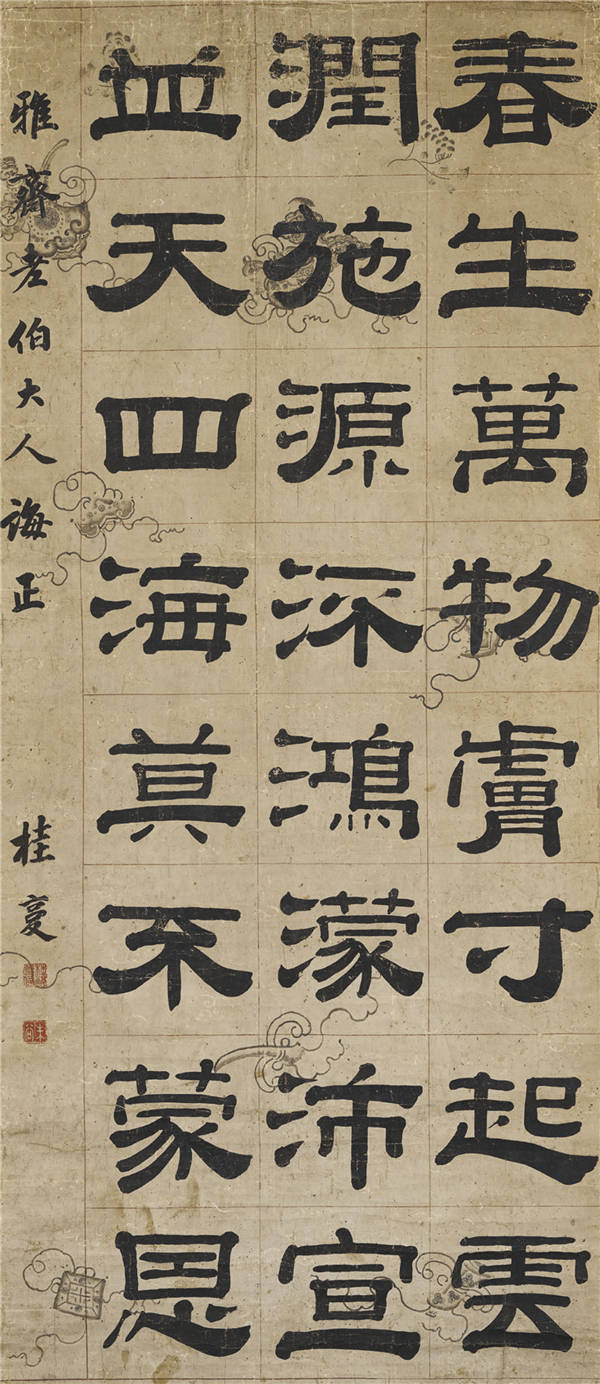 春生萬物膚寸起雲
潤施源深鴻濛沛宣
並天四海莫不蒙恩
雅齋老伯大人誨正
桂馥